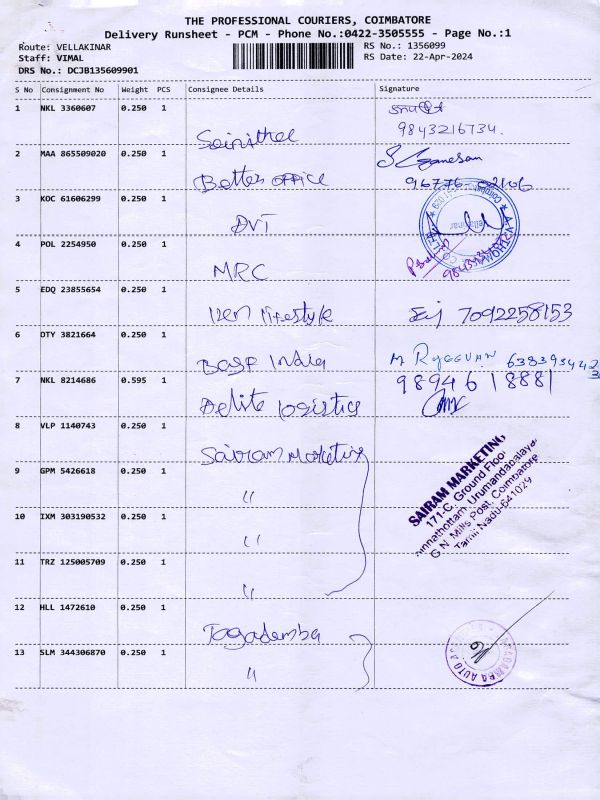 THE PROFESSIONAL COURIERS, COIMBATORE
Delivery Runsheet - PCM - Phone No.:0422-3505555 - Page No.:1
Route: VELLAKINAR
RS No.: 1356099
Staff: VIMAL
RS Date: 22-Apr-2024
DRS No.: DCJB135609901
S No Consignment No Weight PCS Consignee Details Signature
1 NKL 3360607 0.250 1
9843216734.
2 MAA 865509020 0.250 1 Better office S Ganesan
3 KOC 61606299 0.250 1 DVT
4 POL 2254950 0.250 1 MRC
5 EDQ 23855654 0.250 1 lifestyle 7092258153
6 DTY 3821664 0.250 1 Basf India M
7 NKL 8214686 0.595 1 Delite logistics 9894618881
8 VLP 1140743 0.250 1 Sairam Marketing
SAIRAM MARKETING,
171-C, Ground Floor
Urumandapalaya
G.N. Mills Post, Coimbatore
Tamil Nadu-641029
9 GPM 5426618 0.250 1 "
10 IXM 303190532 0.250 1 "
11 TRZ 125005709 0.250 1 "
12 HLL 1472610 0.250 1 Jagadamba
13 SLM 344306870 0.250 1 "